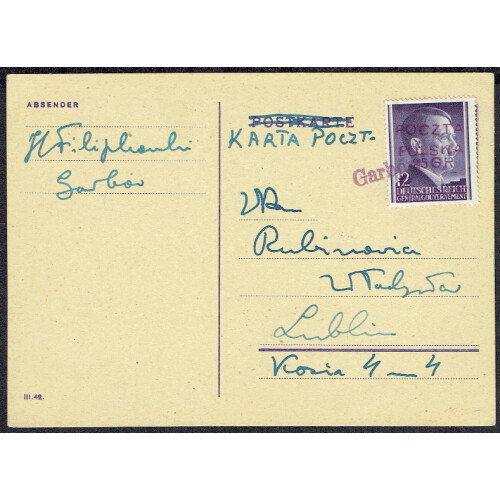 ABSENDER
H Filipkowski
Garbów
POSTKARTE
KARTA POCZT-
POCZTA
POLSKA
25GR
12
DEUTSCHES REICH
GENERALGOUVERNEMENT
WPan
Rubinowicz
Władysław
Lublin
Kozia 4 m 4
III.42.